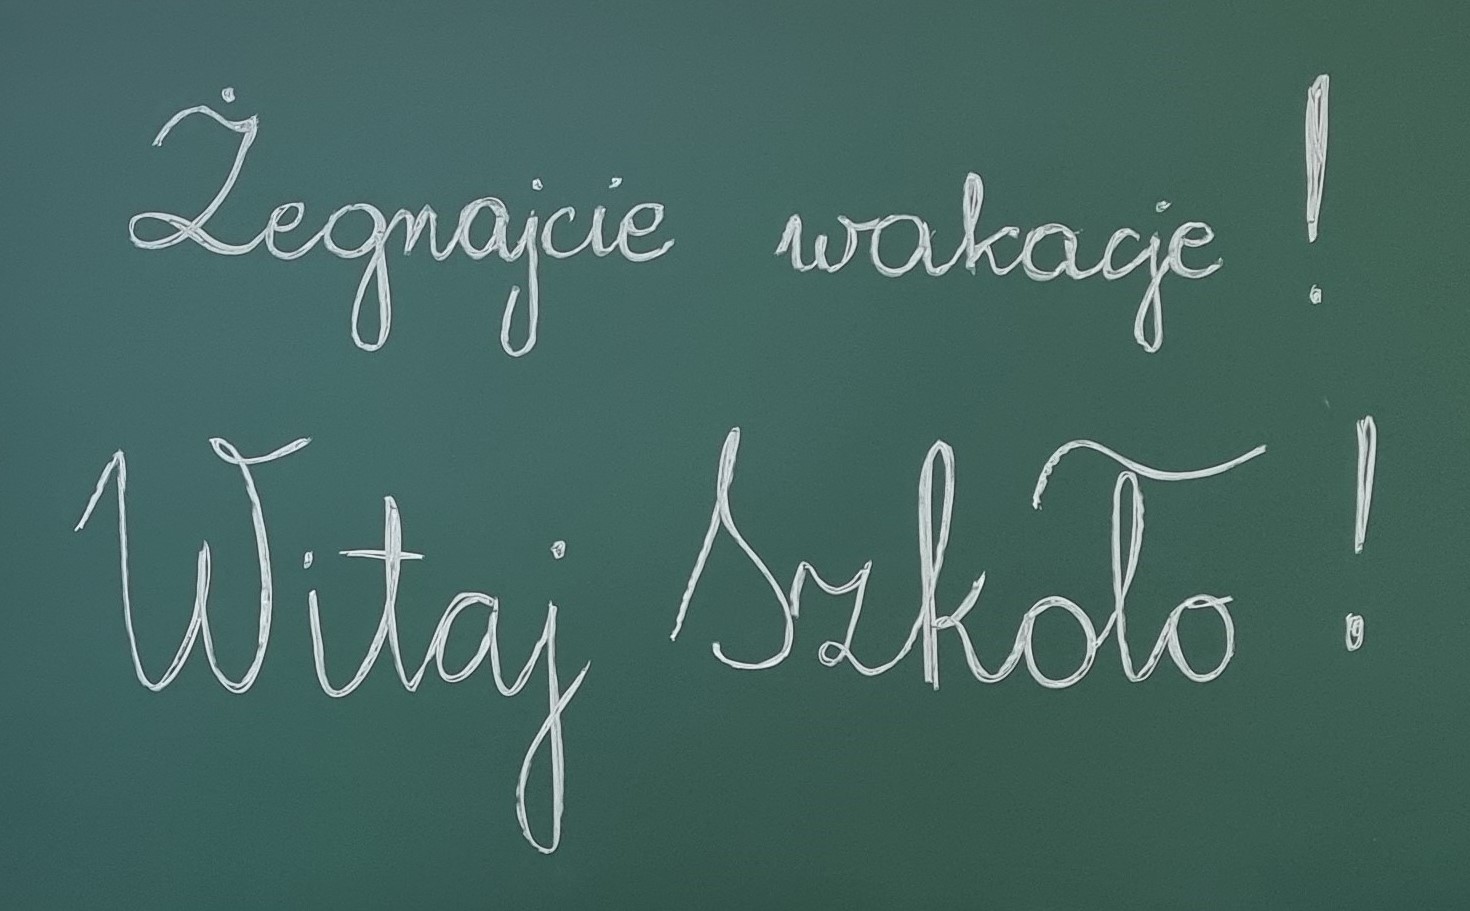 Żegnajcie wakacje!
Witaj Szkoło!